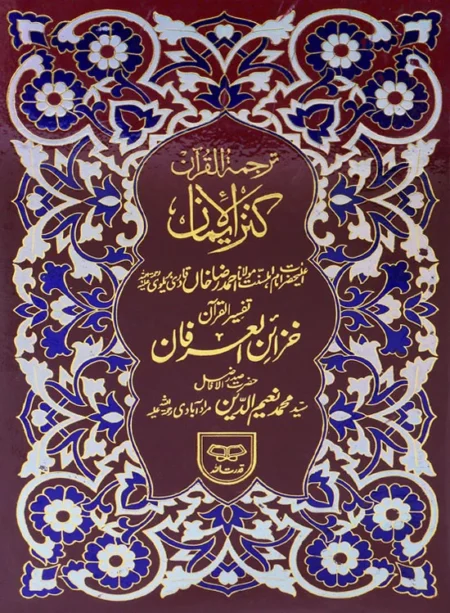 ترجمۃ القرآن
کنز الایمان
اعلیٰحضرت امام اہلسنت مولانا احمد رضا خاں قادری بریلوی رحمۃ اللہ علیہ
تفسیر القرآن
خزائن العرفان
حضرت صدر الافاضل
سید محمد نعیم الدین مرادآبادی رحمۃ اللہ علیہ
قدرت اللہ